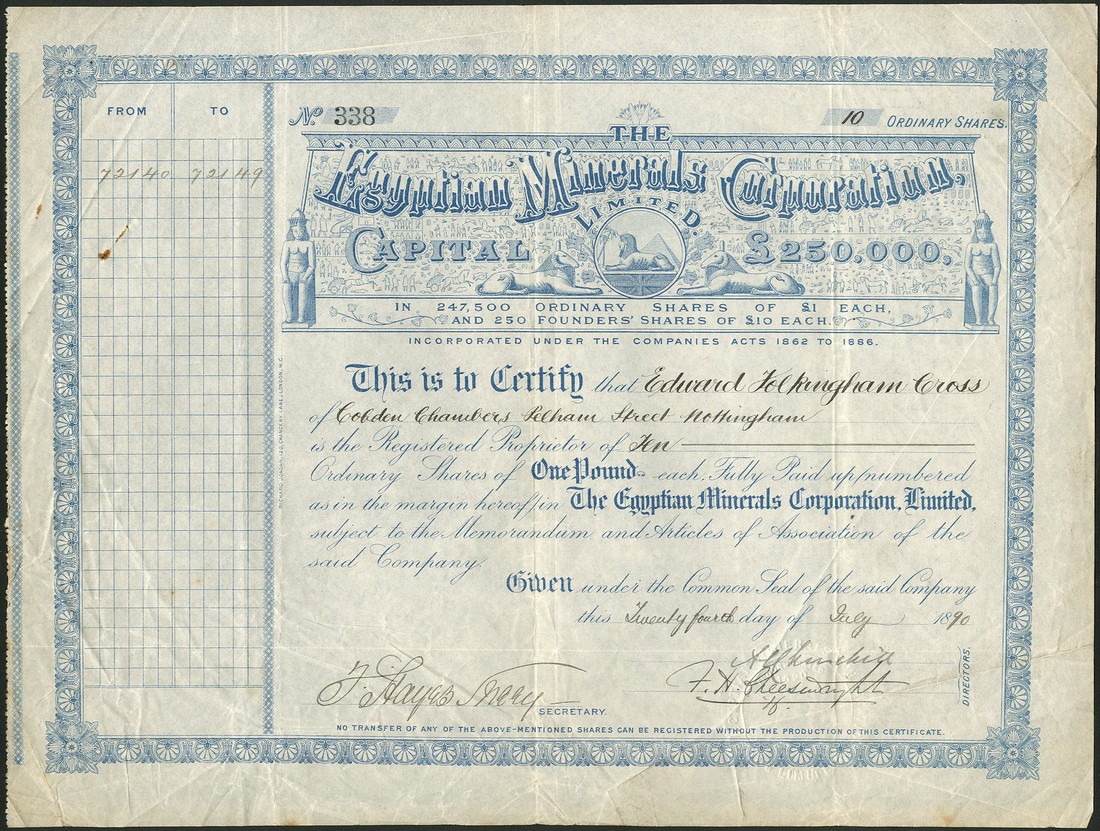 FROM TO
72140 72149
No 338
10 ORDINARY SHARES.
THE
Egyptian Minerals Corporation,
LIMITED.
CAPITAL £250,000,
IN 247,500 ORDINARY SHARES OF £1 EACH,
AND 250 FOUNDERS' SHARES OF £10 EACH.
INCORPORATED UNDER THE COMPANIES ACTS 1862 TO 1886.
This is to Certify that Edward Folkingham Cross
of Cobden Chambers Pelham Street Nottingham
is the Registered Proprietor of Ten
Ordinary Shares of One Pound each, Fully Paid up, numbered
as in the margin hereof, in The Egyptian Minerals Corporation, Limited,
subject to the Memorandum and Articles of Association of the
said Company.
Given under the Common Seal of the said Company
this Twenty fourth day of July 1890
F. H. Cheeswright
DIRECTORS.
F. Hayes
SECRETARY.
NO TRANSFER OF ANY OF THE ABOVE-MENTIONED SHARES CAN BE REGISTERED WITHOUT THE PRODUCTION OF THIS CERTIFICATE.